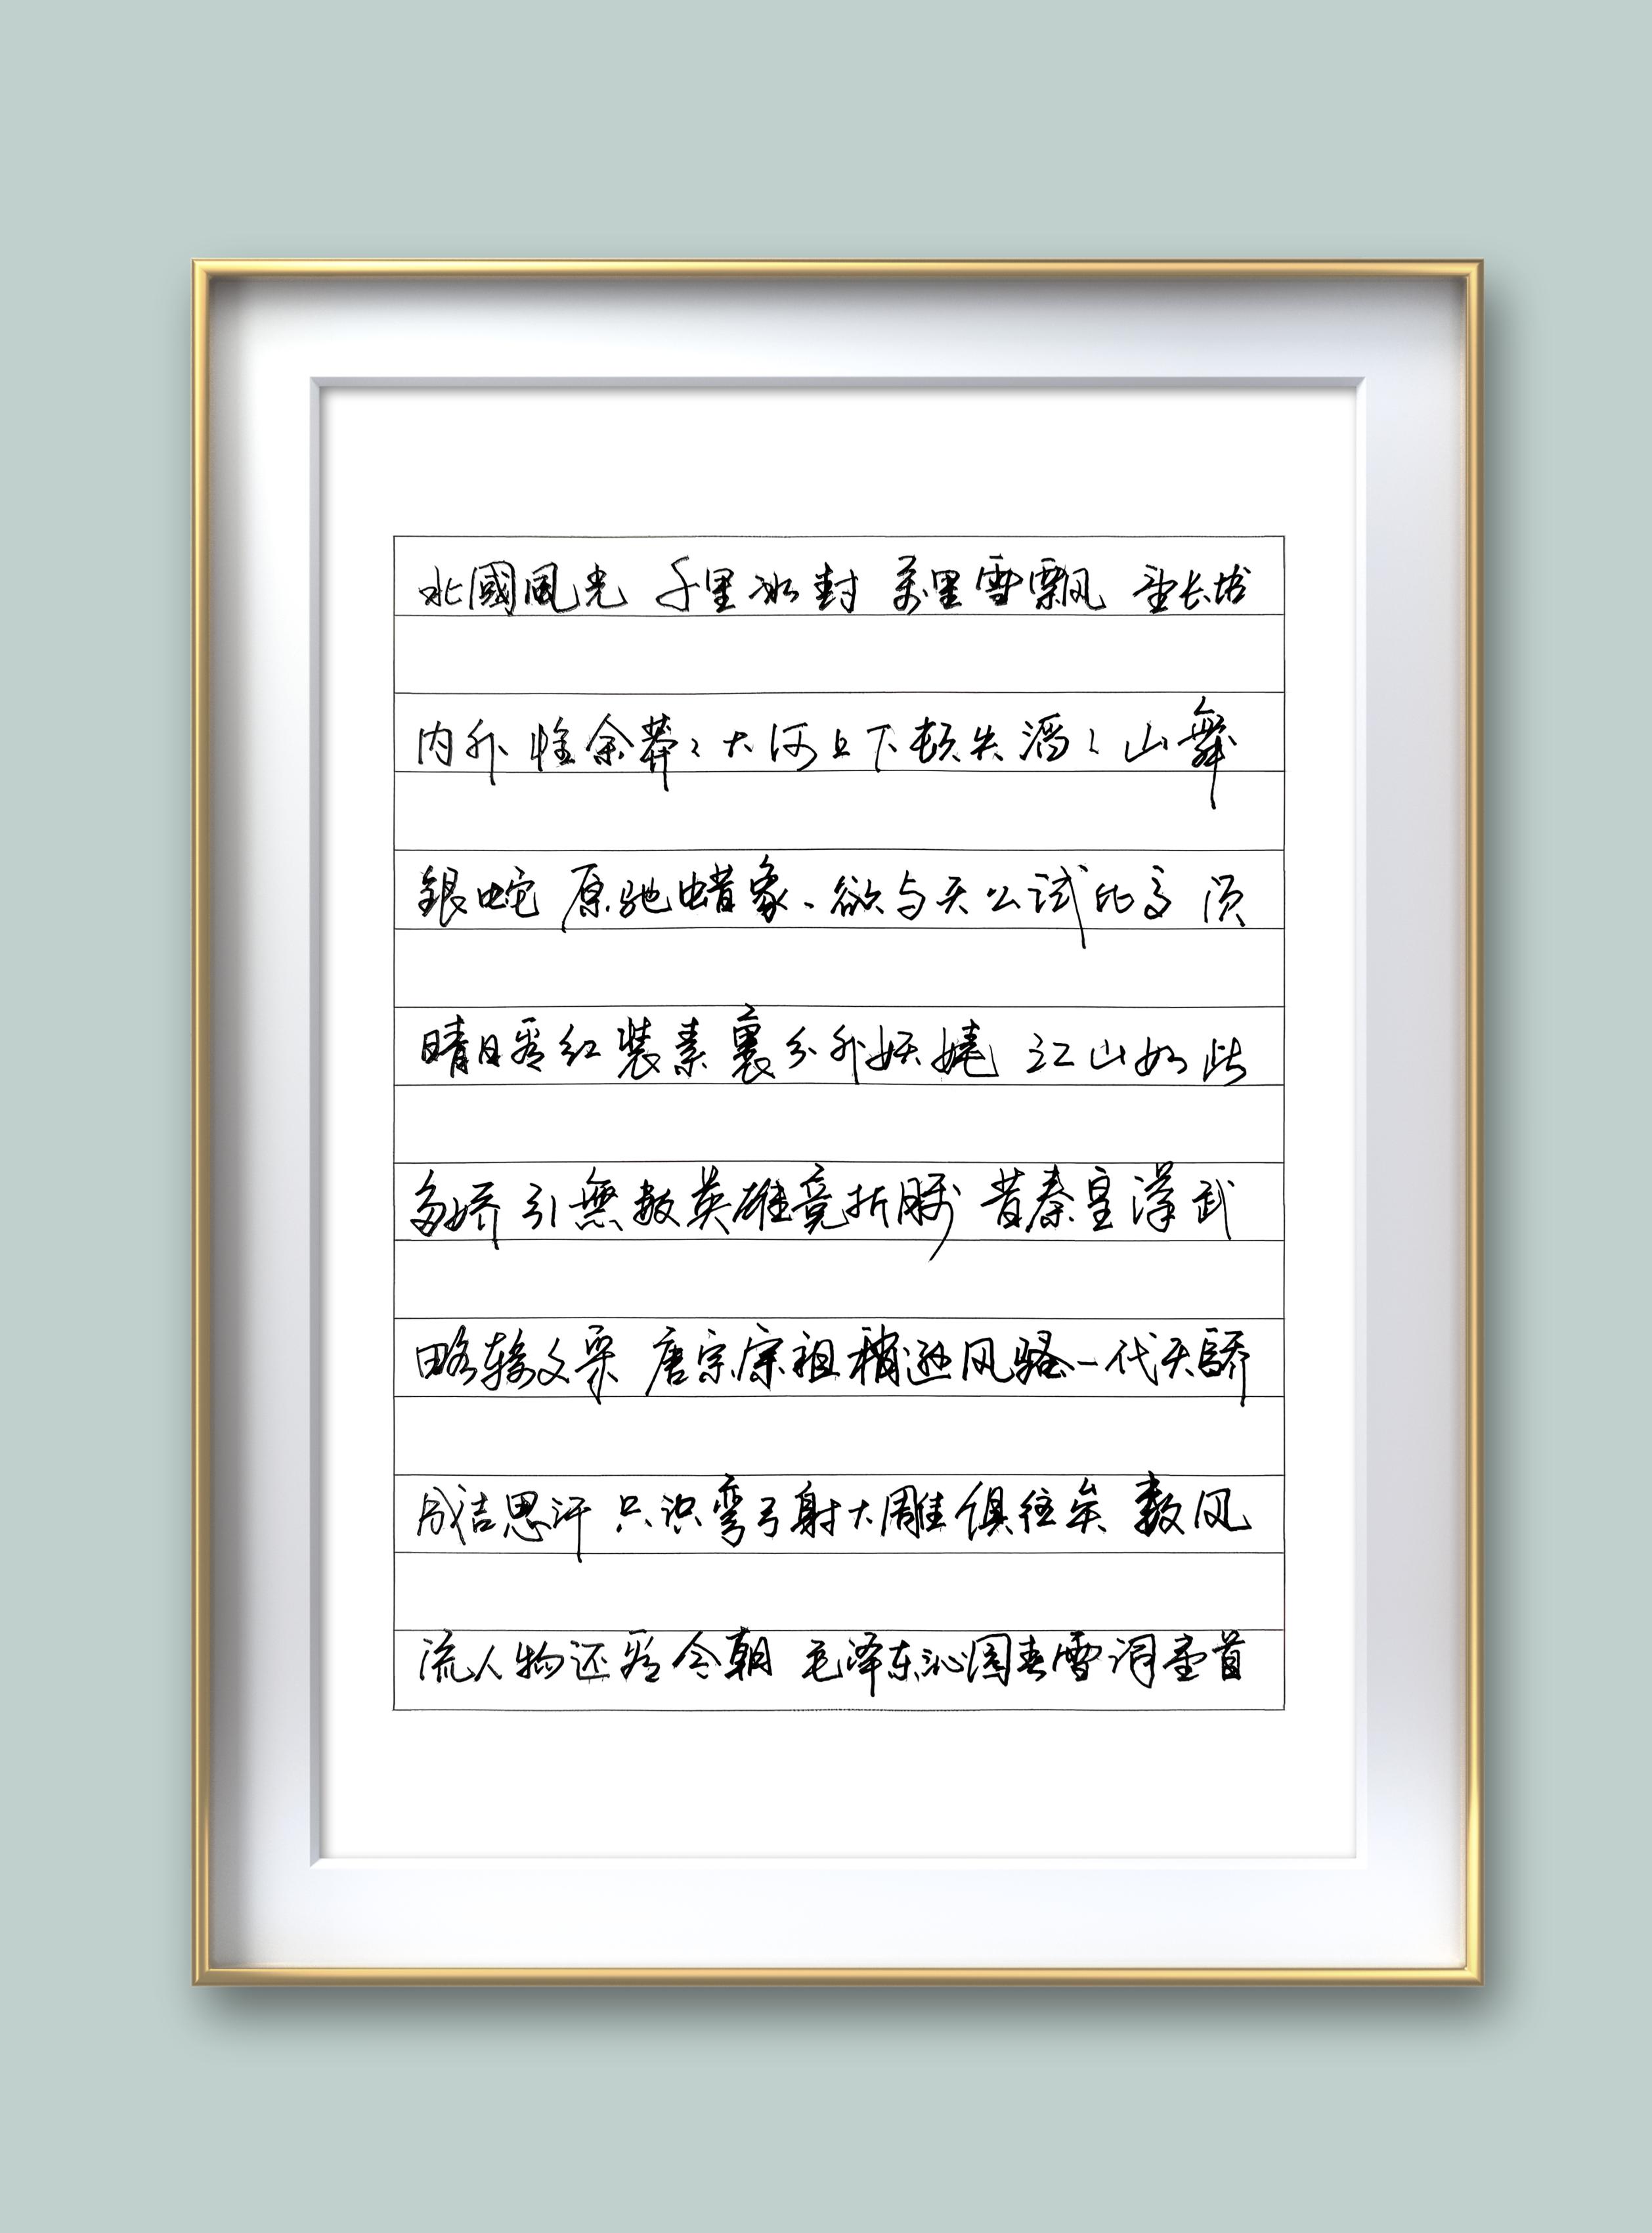 北國風光 千里冰封 萬里雪飘 望长城
内外 惟余莽々大河上下顿失滔々山舞
銀蛇 原驰蜡象、欲与天公试比高 须
晴日看红装素裹分外妖娆 江山如此
多娇 引無数英雄竞折腰 昔秦皇漢武
略输文采 唐宗宋祖稍逊风骚一代天驕
成吉思汗 只识弯弓射大雕俱往矣 数风
流人物还看今朝 毛泽东沁园春雪词壹首